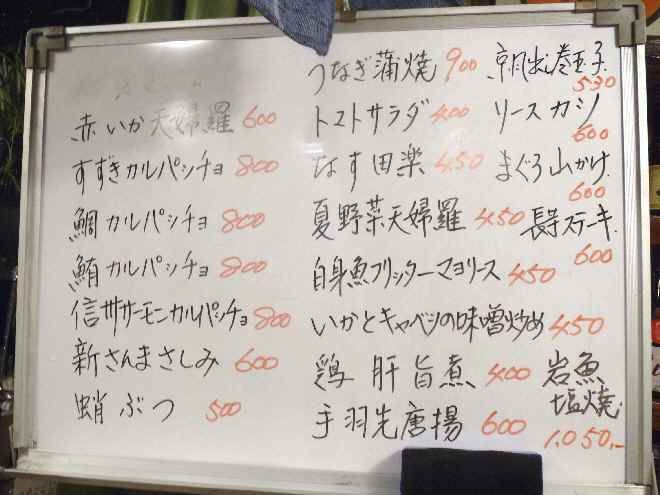 赤いか天婦羅 600
すずきカルパッチョ 800
鯛カルパッチョ 800
鮪カルパッチョ 800
信州サーモンカルパッチョ 800
新さんまさしみ 600
蛸ぶつ 500
うなぎ蒲焼 900
トマトサラダ 400
なす田楽 450
夏野菜天婦羅 450
白身魚フリッターマヨソース 450
いかとキャベツの味噌炒め 450
鶏肝旨煮 400
手羽先唐揚 600
出巻玉子
530
ソースカツ
600
まぐろ山かけ
600
長芋ステーキ
600
岩魚
塩焼
1,050.-